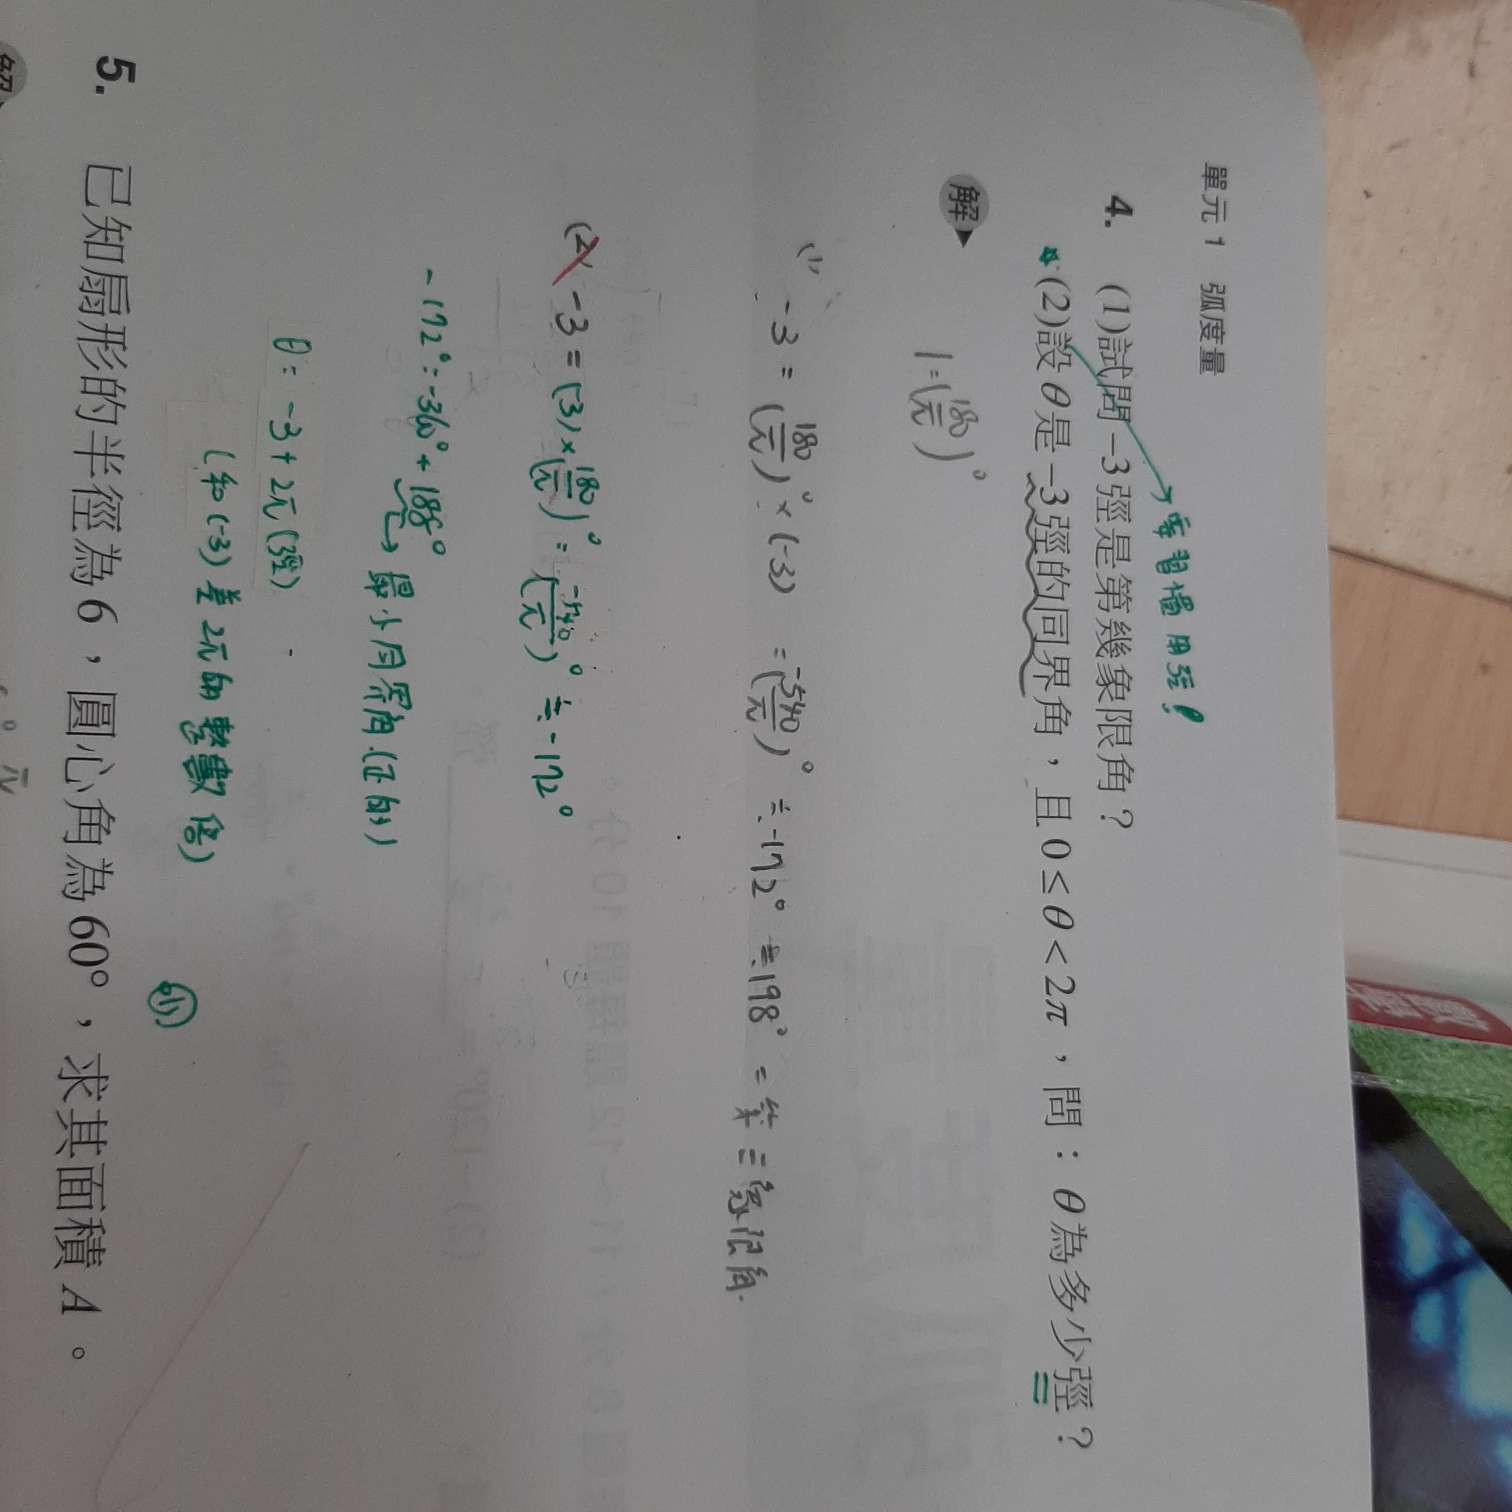 單元 1 弧度量
→要習慣用弳!
4. (1)試問 -3 弳是第幾象限角？
(2)設 θ 是 -3 弳的同界角，且 0 ≤ θ < 2π，問：θ 為多少弳？
解
1 = (180/π)°
(1) -3 = (180/π)° × (-3) = (-540/π)° ≒ -172° ≒ 198° = 第三象限角.
(2) -3 = (-3) × (180/π)° = (-540/π)° ≒ -172°
-172° = -360° + 188° → 最小同界角(正的)
θ = -3 + 2π (弳)
(和(-3)差 2π 的整數倍)
5. 已知扇形的半徑為 6，圓心角為 60°，求其面積 A。
解